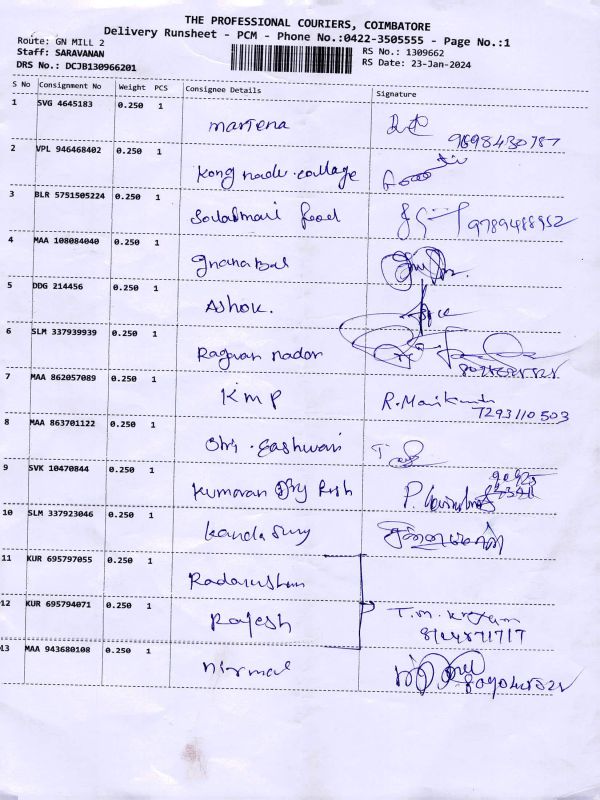 THE PROFESSIONAL COURIERS, COIMBATORE
Delivery Runsheet - PCM - Phone No.:0422-3505555 - Page No.:1
Route: GN MILL 2
Staff: SARAVANAN
DRS No.: DCJB130966201
RS No.: 1309662
RS Date: 23-Jan-2024
S No Consignment No Weight PCS Consignee Details Signature
1 SVG 4645183 0.250 1 martena 9698430787
2 VPL 946468402 0.250 1 Kong nadu.collage
3 BLR 5751505224 0.250 1 food 9789488952
4 MAA 108084040 0.250 1 gnanabal
5 DDG 214456 0.250 1 Ashok.
6 SLM 337939939 0.250 1 Ragavan nadar
7 MAA 862057089 0.250 1 KMP R.Manikanth
7293110503
8 MAA 863701122 0.250 1 Shri.Eashwari
9 SVK 10470844 0.250 1 Kumaran
10 SLM 337923046 0.250 1 Kandasamy
11 KUR 695797055 0.250 1
12 KUR 695794071 0.250 1 Rajesh T.M.
13 MAA 943680108 0.250 1 nirmal